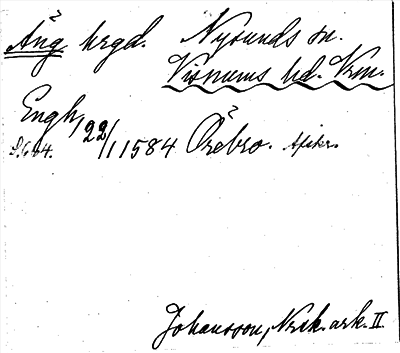 Äng hrgd. Nysunds sn.
Visnums hd. Vrm.
Engh, 22/1 1584 Örebro. Afskr.
S. 664.
Johansson, Nerik. ark. II.